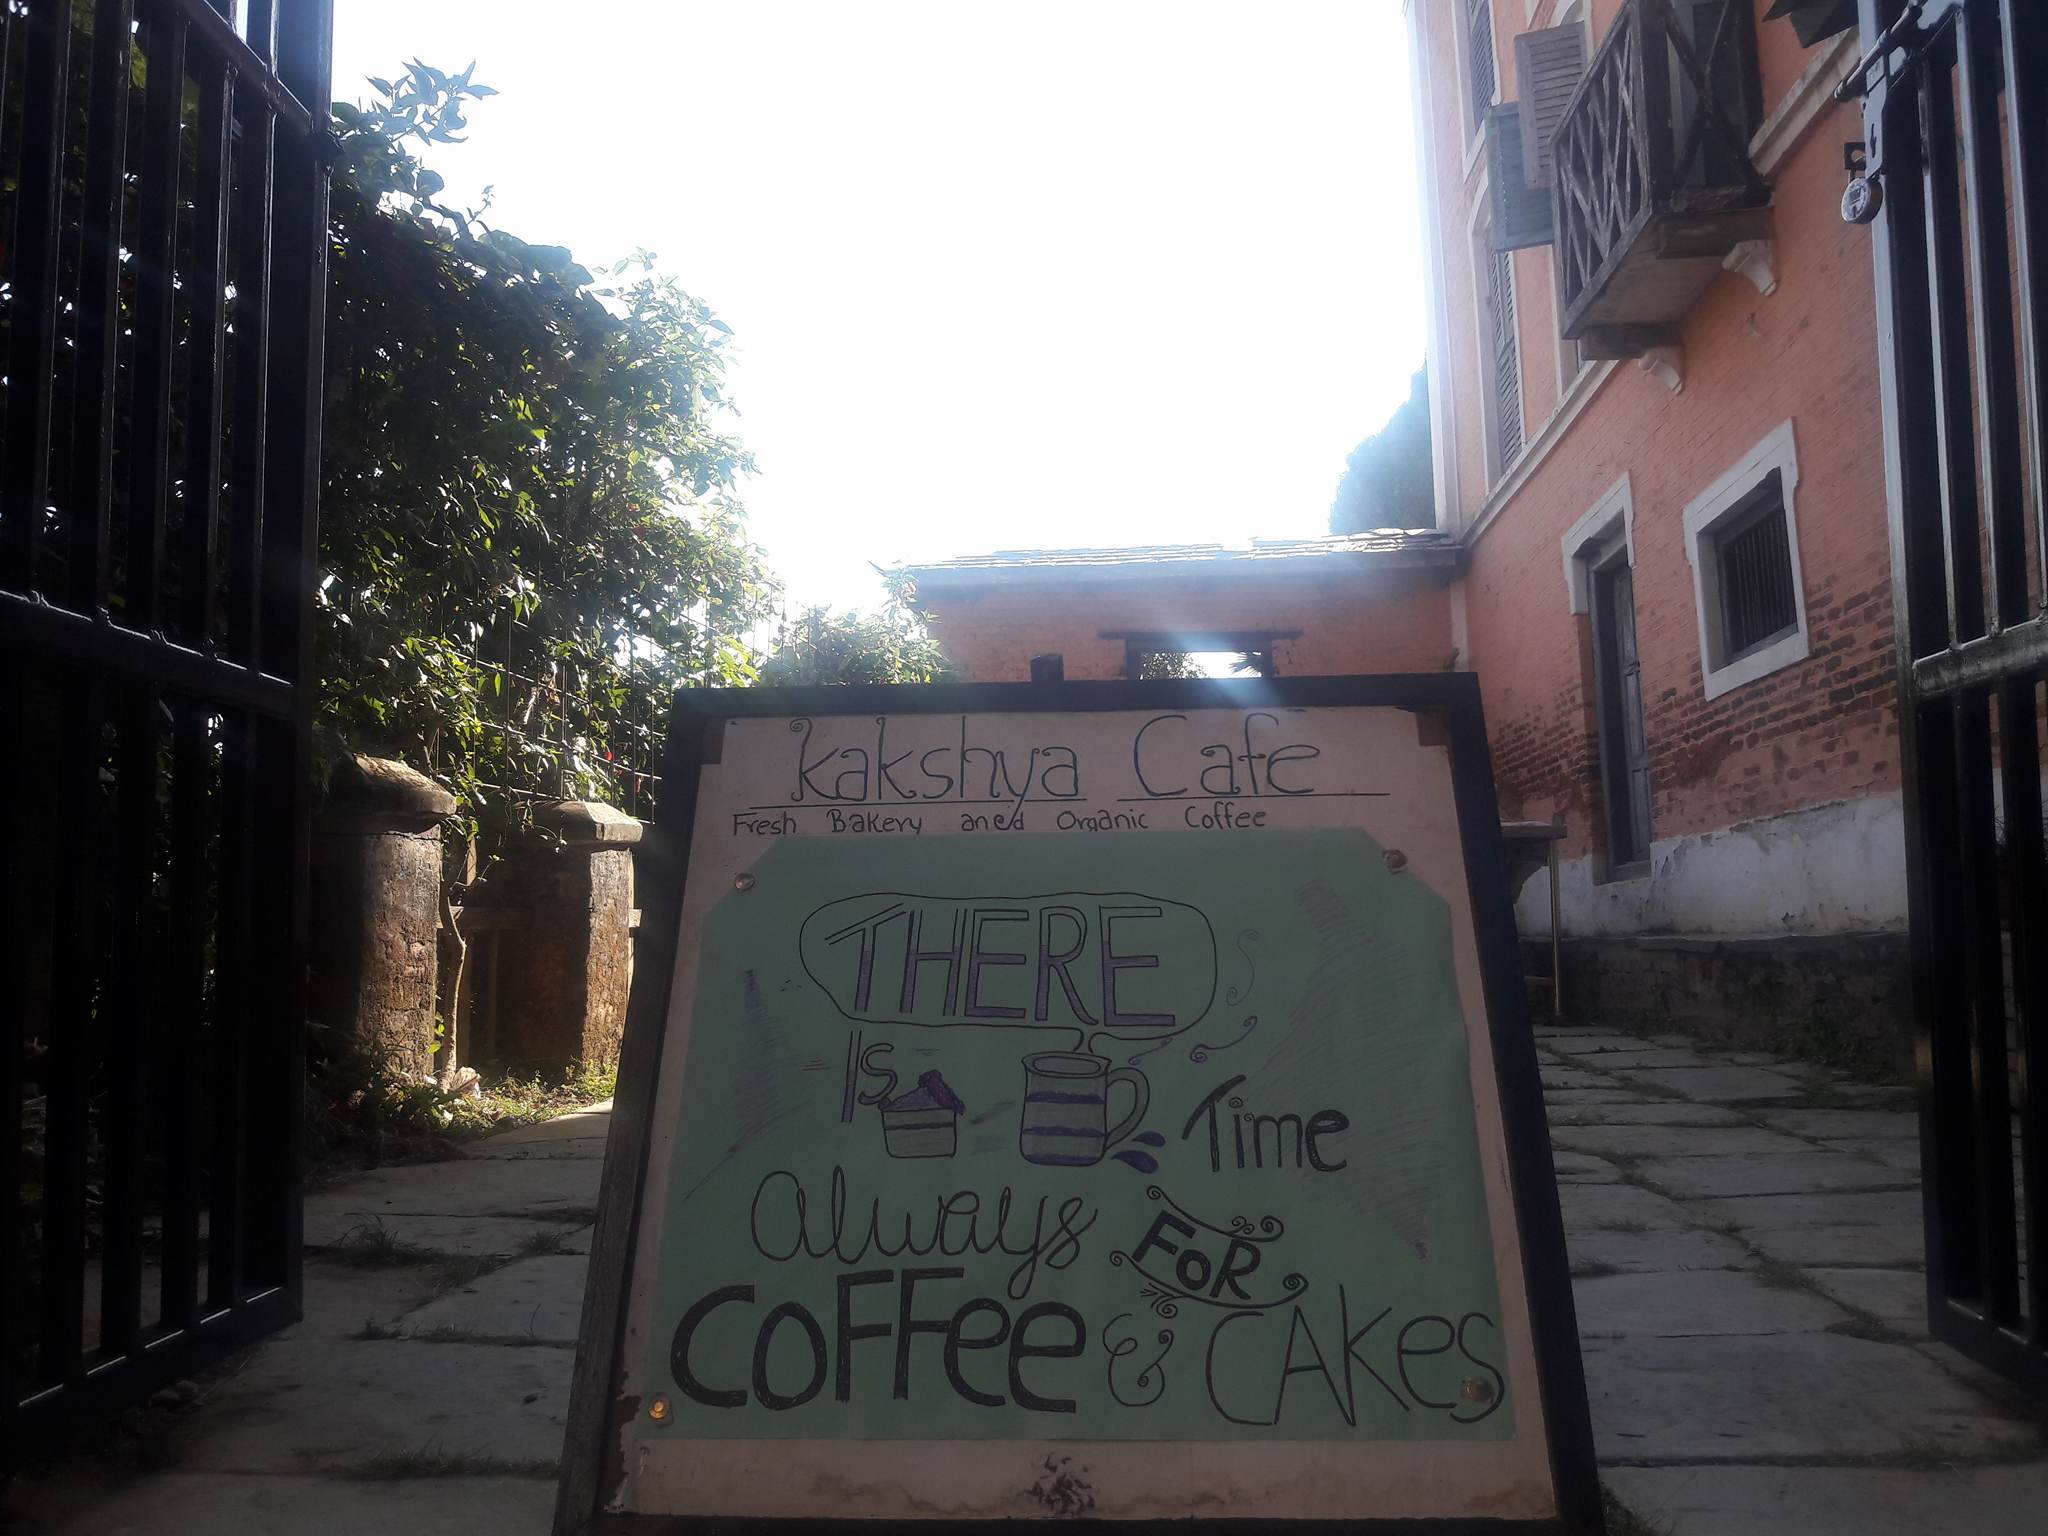 Kakshya Cafe
Fresh Bakery and Organic Coffee
THERE
Is Time
always FOR
COFFee & CAKes